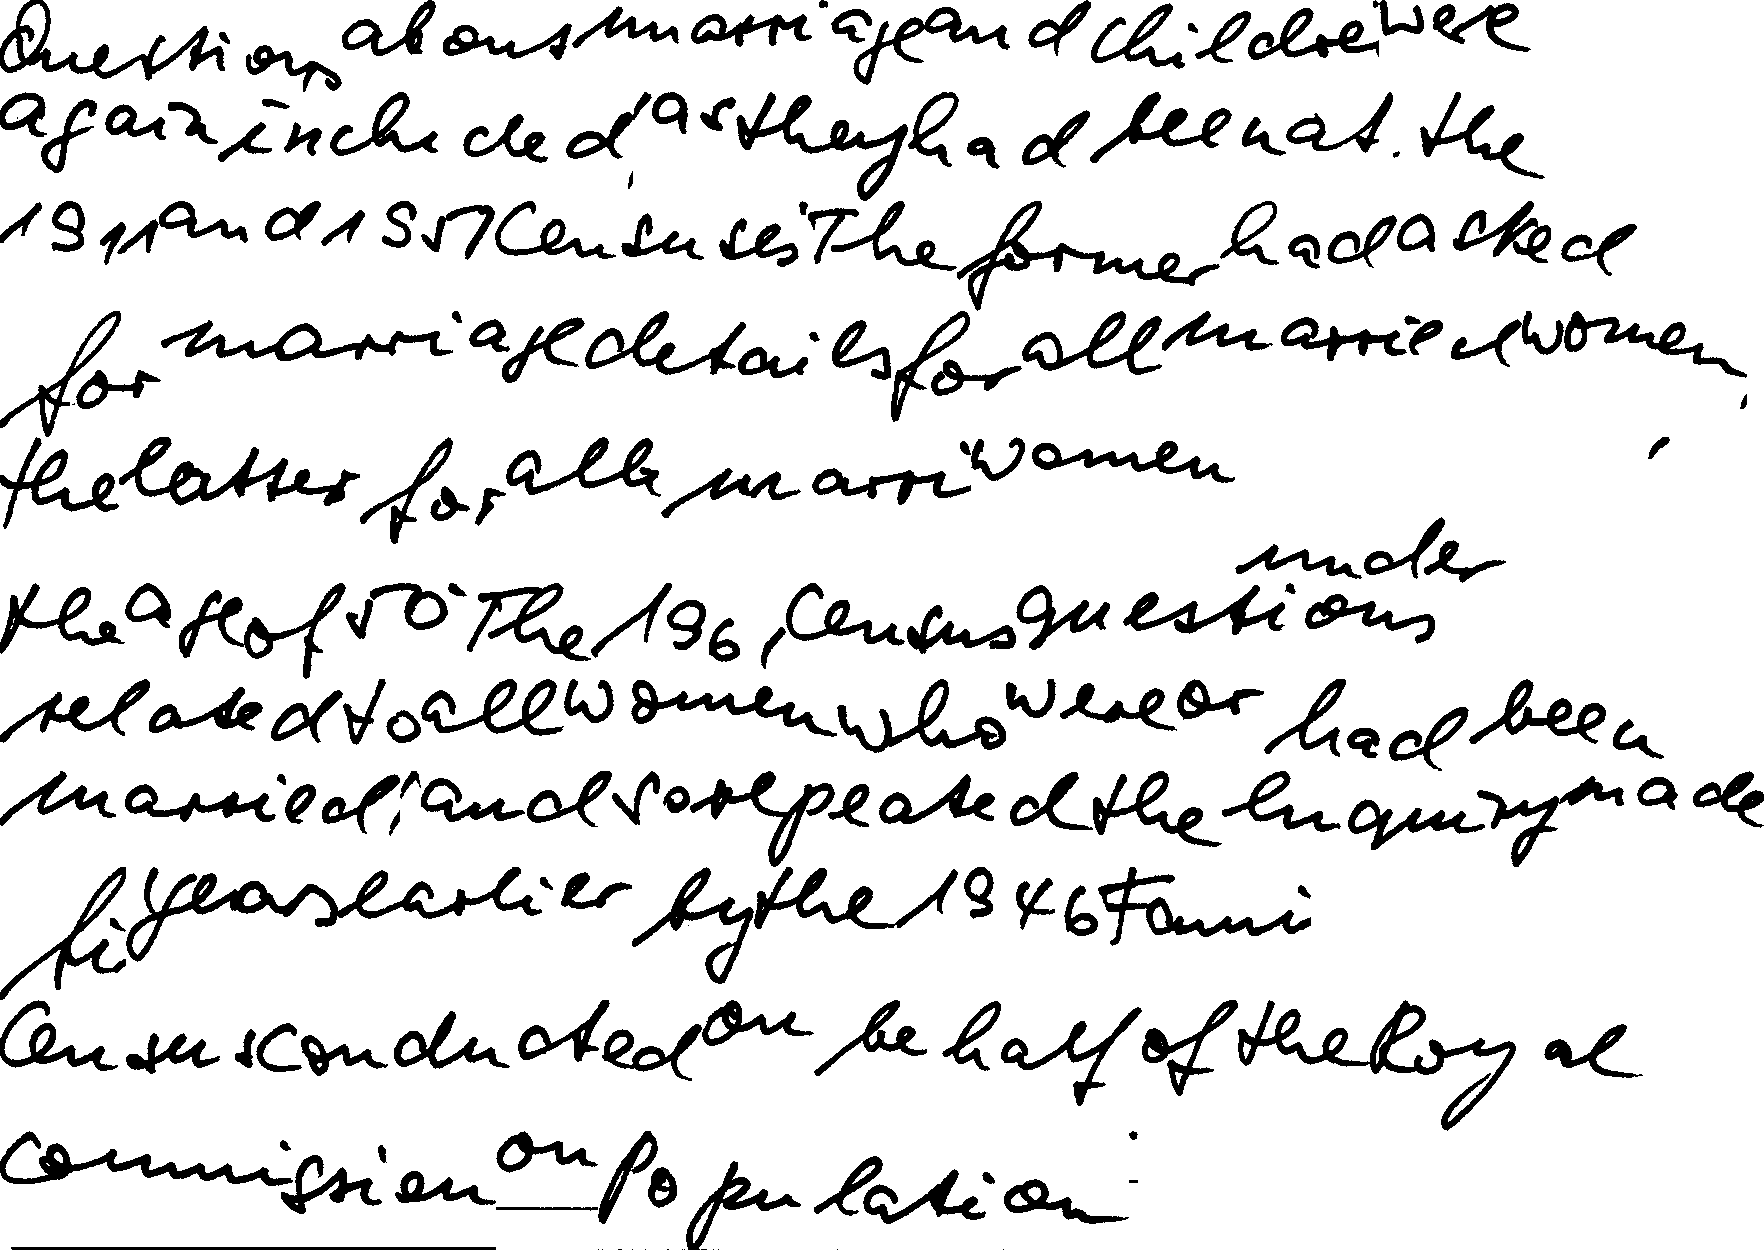 Questions about marriage and children were
again included, as they had been at the
1911 and 1951 Censuses. The former had asked
for marriage details for all married women,
the latter for all marri women
under
the age of 50. The 1961 Census questions
related to all women who were or had been
married, and so repeated the Inquiry made
fi years earlier by the 1946 Fami
Census conducted on behalf of the Royal
Commission on Population.